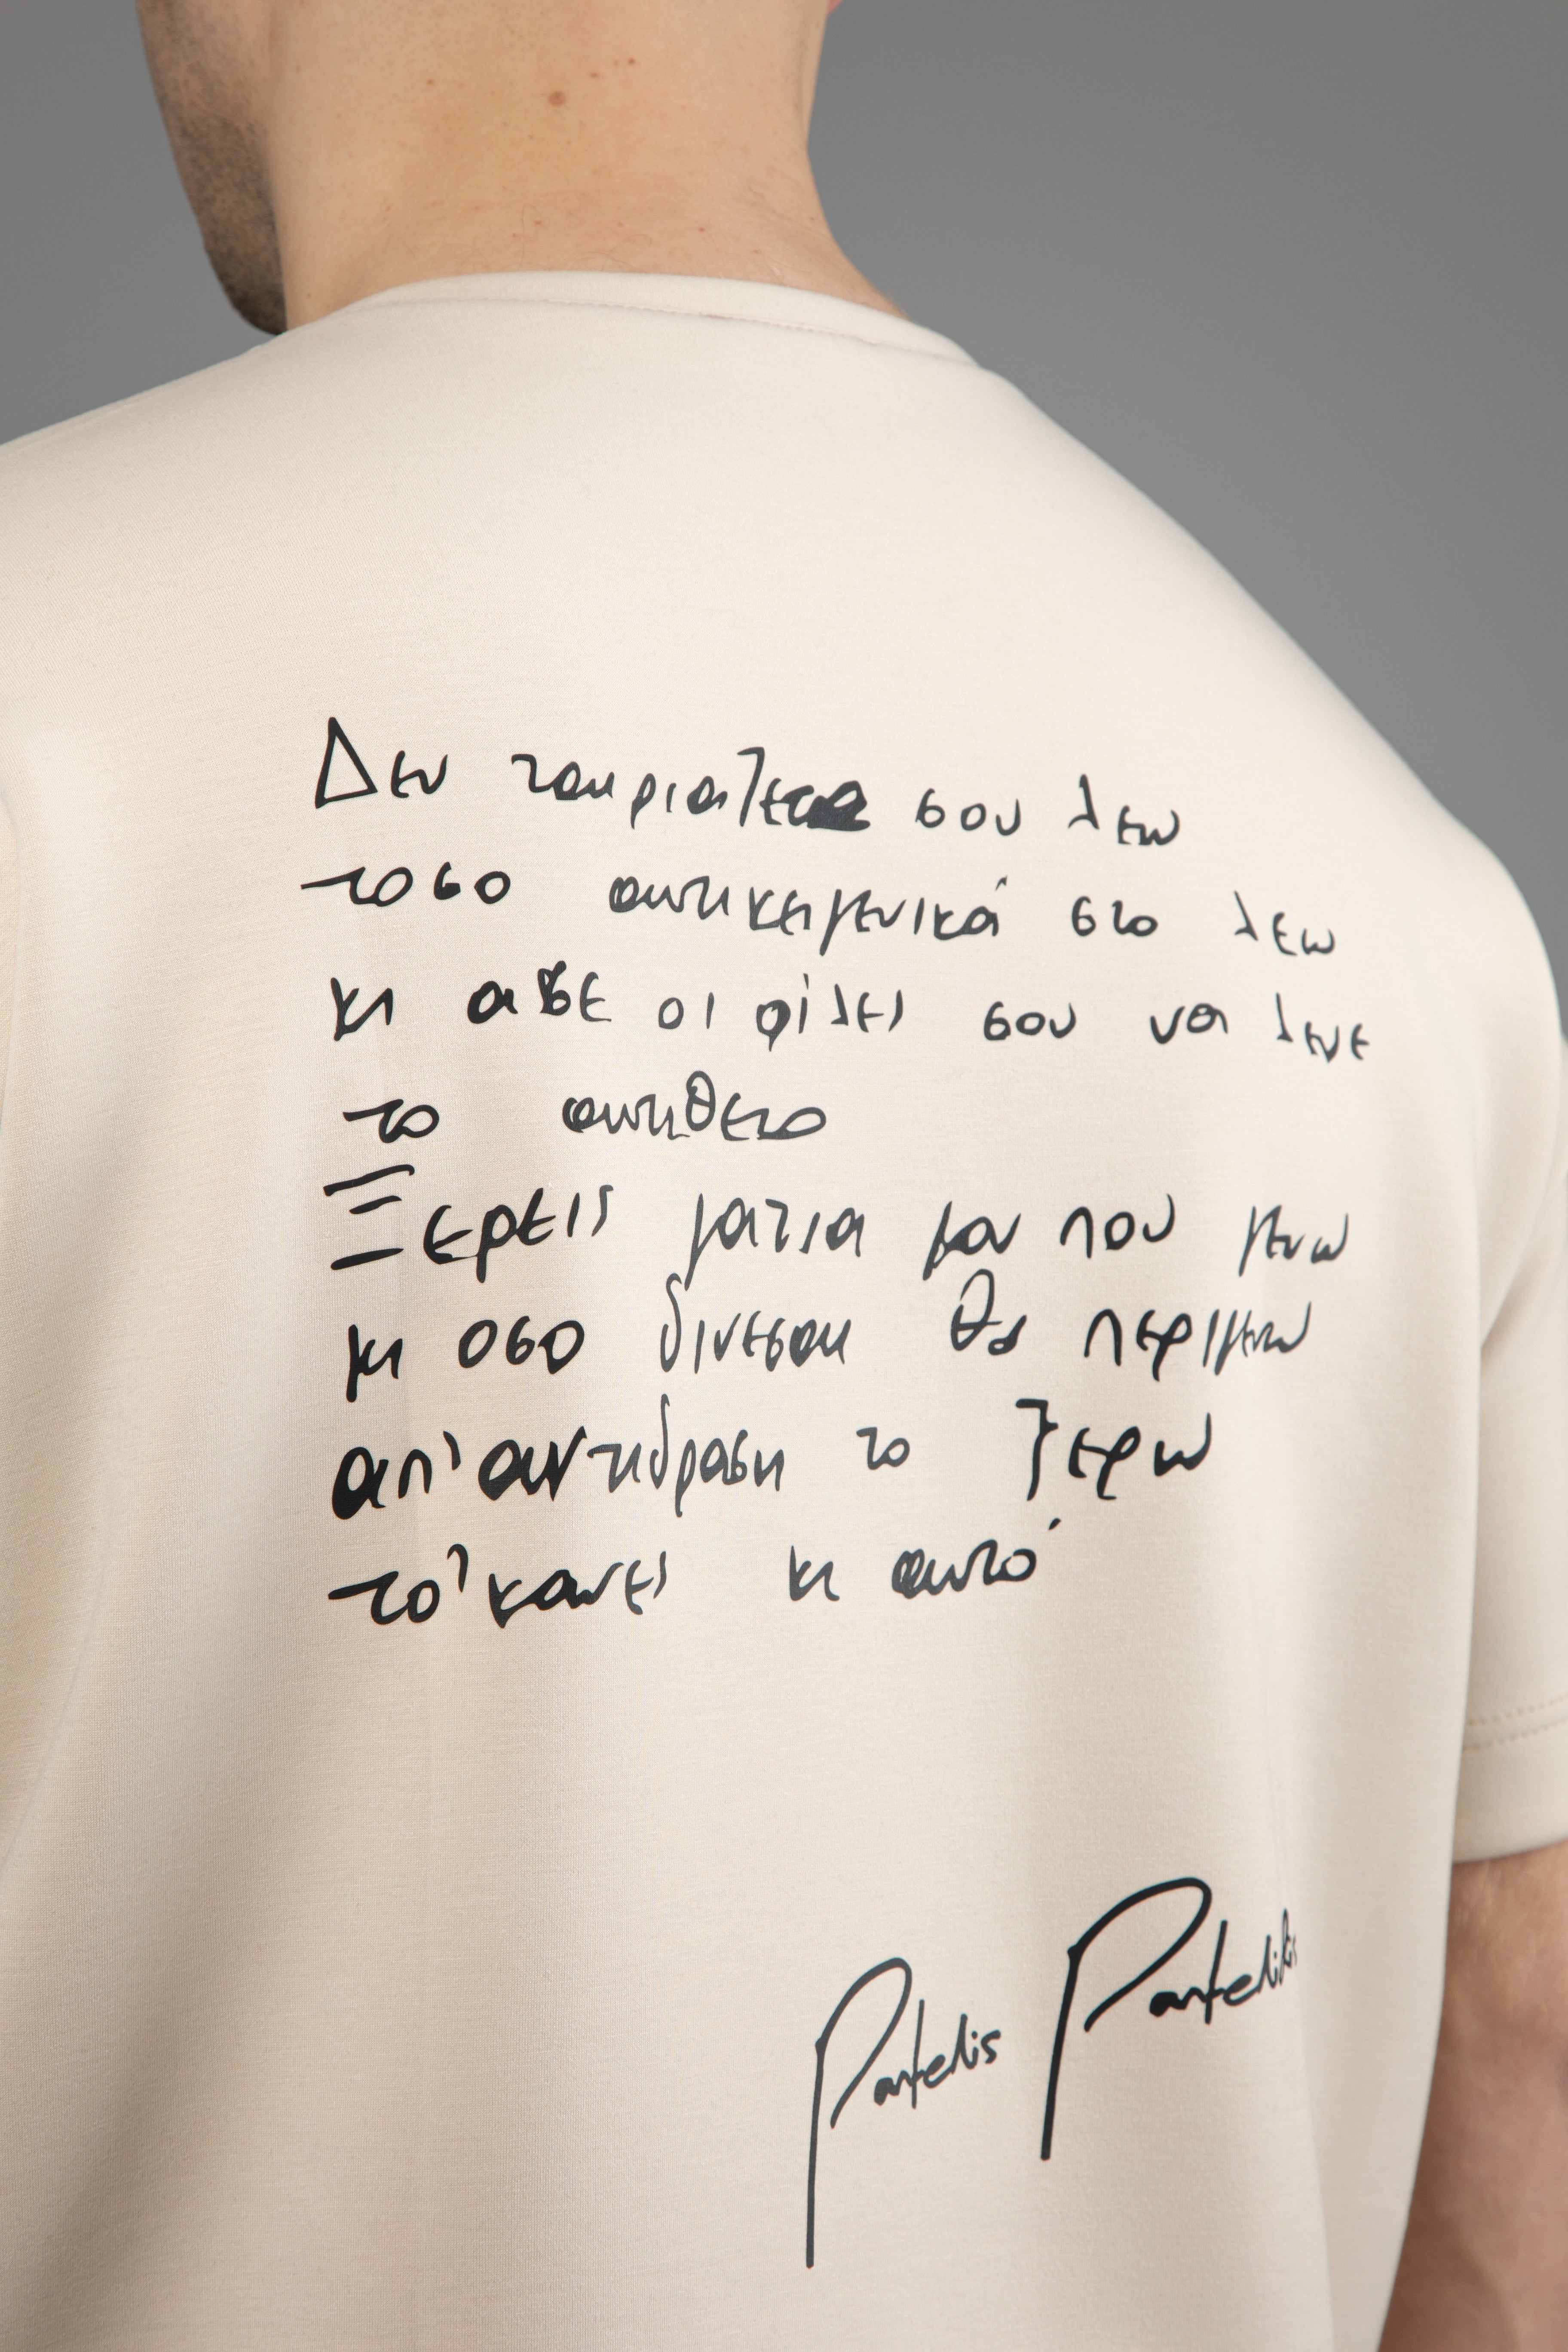 Δεν ταιριαζεται σου λεω
τοσο αντικειμενικά στο λεω
κι ασε οι φίλες σου να λενε
το αντιθετο
Ξερεις ματια μου που μενω
μη οσο δινεσαι θα περιμενω
απ' αντιδραση το ξερω
το' κανες κι αυτό
Pantelis Pantelidis